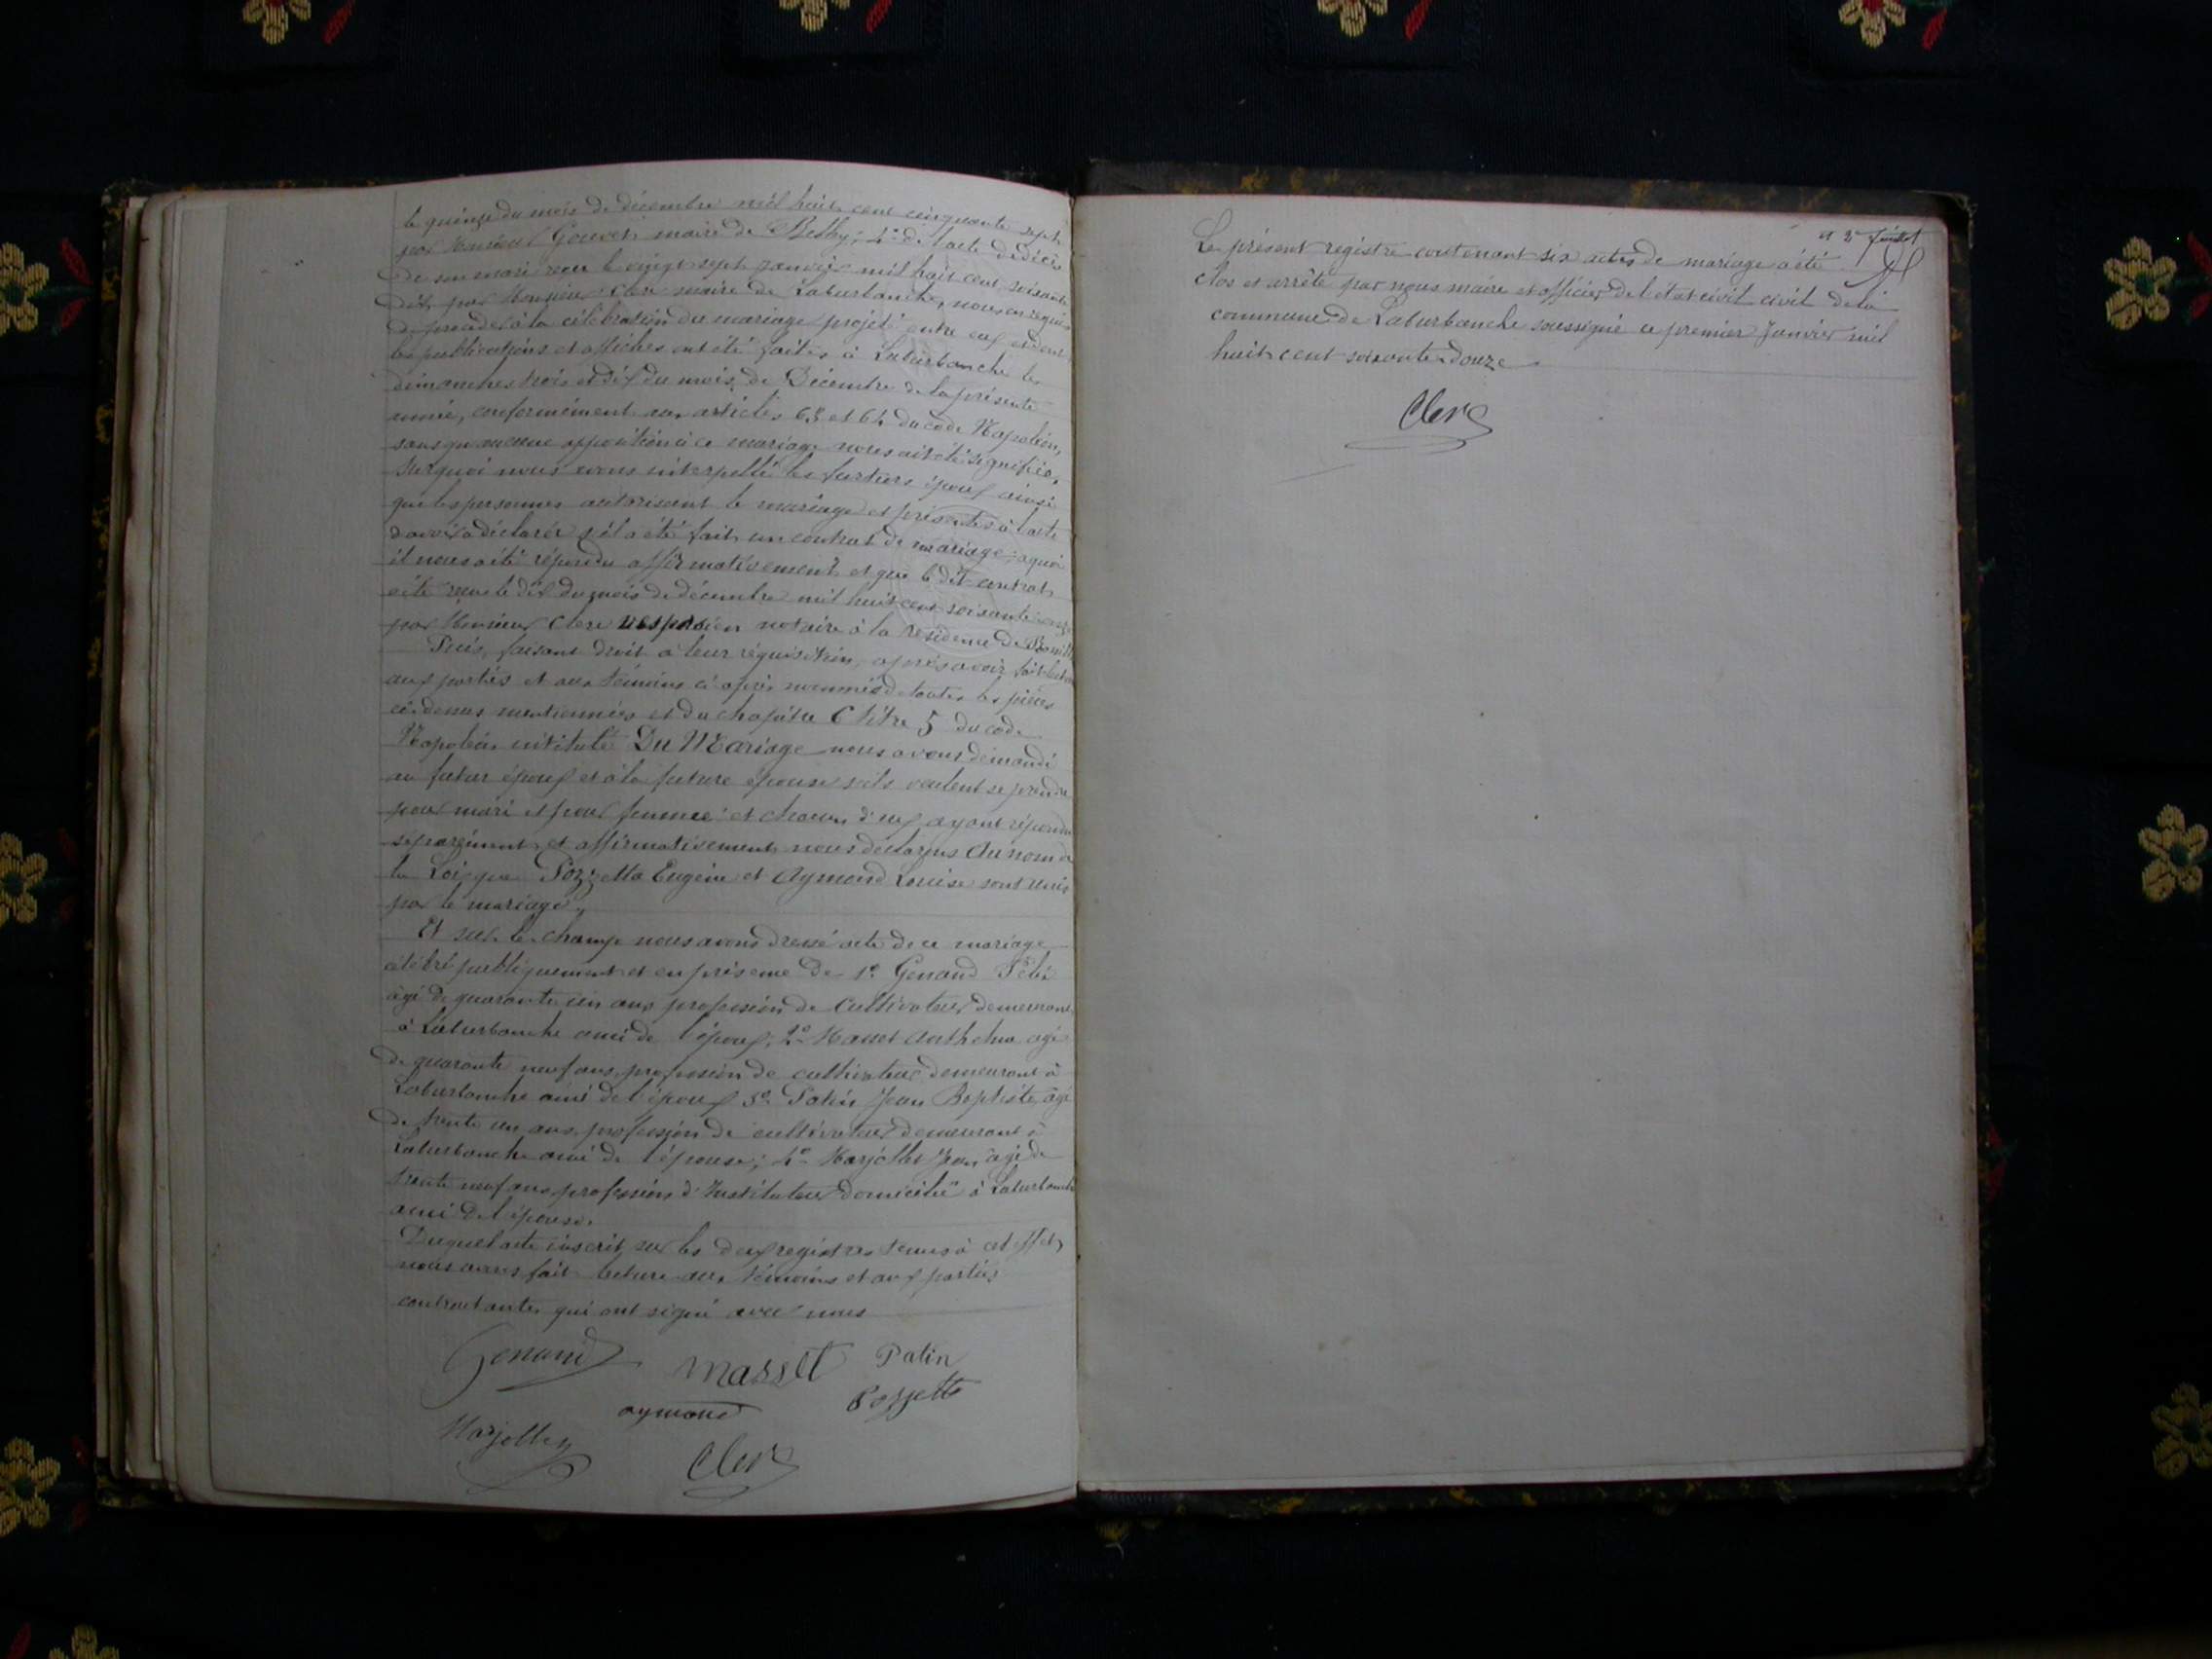 le quinze du mois de décembre mil huit cent cinquante sept
par Monsieur Gouvet maire de Belley; 4° de l'acte de décès
de son mari reçu le vingt sept janvier mil huit cent soixante
dix, par Monsieur Clerc maire de Laburbanche, nous en requis
de procéder à la célébration du mariage projeté entre eux et dont
les publications et affiches ont été faites à Laburbanche les
dimanches trois et dix du mois de Décembre de la présente
année, conformément aux articles 63 et 64 du code Napoléon,
sans qu'aucune opposition à ce mariage nous ait été signifiée,
sur quoi nous avons interpellé les futurs époux ainsi
que les personnes autorisant le mariage et présentes à l'acte
d'avoir à déclarer s'il a été fait un contrat de mariage; a quoi
il nous a été répondu affirmativement et que le dit contrat
a été reçu le dix du mois de décembre mil huit cent soixante onze
par Monsieur Clerc notaire à la résidence de
Puis, faisant droit à leur réquisition, après avoir fait lecture
aux parties et aux témoins ci après nommés de toutes les pièces
ci-dessus mentionnées et du chapitre 6 titre 5 du code
Napoléon intitulé Du Mariage nous avons demandé
au futur époux et à la future épouse s'ils veulent se prendre
pour mari et pour femme: et chacun d'eux ayant répondu
séparément et affirmativement nous déclarons Au nom de
la Loi que Pozzetto Eugène et Aymond Louise sont unis
par le mariage,
Et sur le champ nous avons dressé acte de ce mariage
célébré publiquement et en présence de 1° Genand
âgé de quarante un ans profession de cultivateur demeurant
à Laburbanche ami de l'époux; 2° Masset Anthelme âgé
de quarante neuf ans profession de cultivateur demeurant à
Laburbanche ami de l'époux 3° Patin Jean Baptiste, âgé
de trente un ans profession de cultivateur demeurant à
Laburbanche ami de l'épouse; 4° Marjollet Jean âgé de
trente neuf ans profession d'Instituteur domicilié à Laburbanche
ami de l'épouse.
Duquel acte inscrit sur les deux registres tenus à cet effet,
nous avons fait lecture aux témoins et aux parties
contractantes qui ont signé avec nous
Genand Masset Patin
aymond Pozzetto
Marjollet Clerc
et 2e feuillet
Le présent registre contenant six actes de mariage a été
clos et arrêté par nous maire et officier de l'état civil civil de la
commune de Laburbanche soussigné ce premier Janvier mil
huit cent soixante douze
Clerc